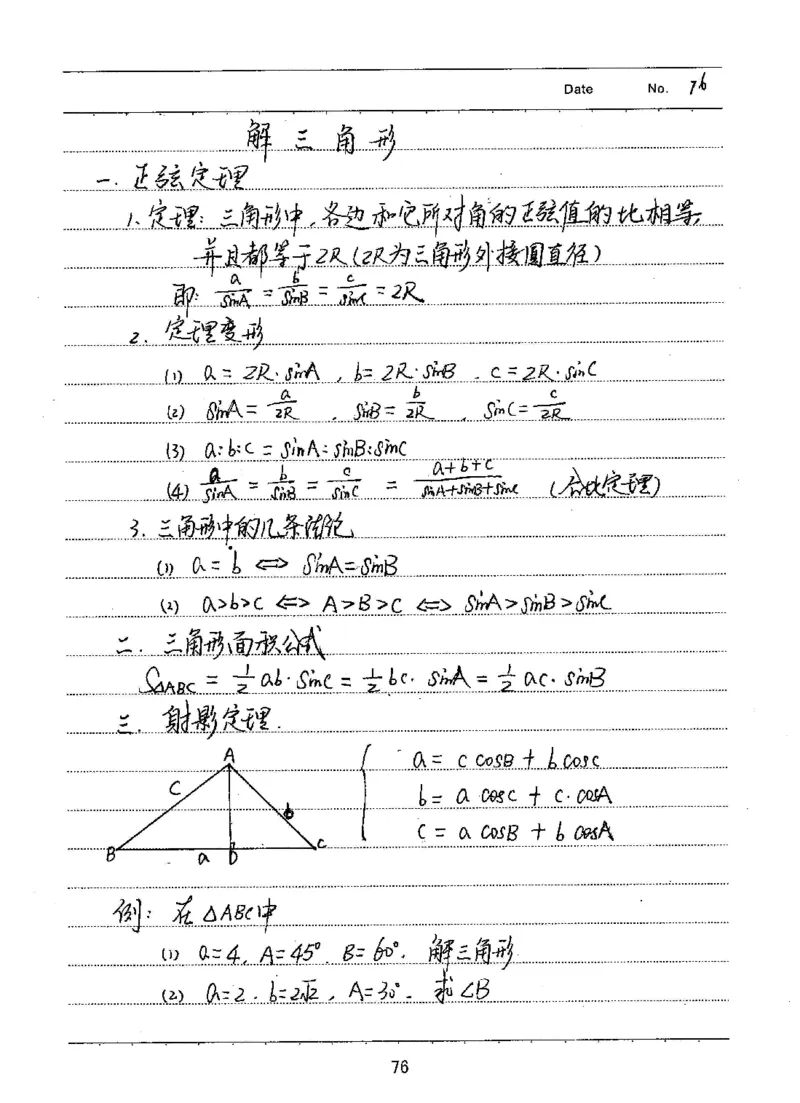 Date No. 76
解三角形
一. 正弦定理
1. 定理: 三角形中, 各边和它所对角的正弦值的比相等,
并且都等于2R (2R为三角形外接圆直径)
即: a/sinA = b/sinB = c/sinC = 2R
2. 定理变形
(1) a = 2R·sinA , b = 2R·sinB . c = 2R·sinC
(2) sinA = a/2R , sinB = b/2R , sinC = c/2R
(3) a:b:c = sinA:sinB:sinC
(4) a/sinA = b/sinB = c/sinC = a+b+c/sinA+sinB+sinC (合比定理)
3. 三角形中的几条结论
(1) a = b ⟺ sinA = sinB
(2) a>b>c ⟺ A>B>C ⟺ sinA>sinB>sinC
二. 三角形面积公式
S△ABC = 1/2 ab·sinC = 1/2 bc·sinA = 1/2 ac·sinB
三. 射影定理.
A
C
b
B
a
D
C
a = c cosB + b cosC
b = a cosC + c·cosA
c = a cosB + b cosA
例: 在△ABC中
(1) a=4, A=45° B=60°. 解三角形
(2) a=2. b=2√2, A=30°. 求∠B
76